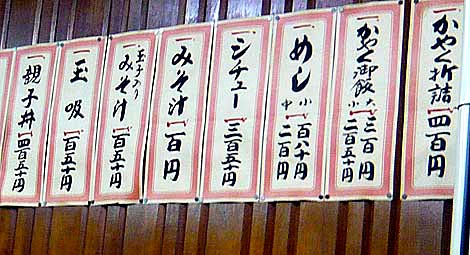 一、かやく折詰 一、四百円
一、かやく御飯 大 一、三百円
小 二百五十円
一、めし 小 一、百八十円
中 二百円
一、シチュー 一、三百五十円
一、みそ汁 一、百円
一、玉子入りみそ汁 一、百五十円
一、玉吸 一、百五十円
一、親子丼 一、四百五十円